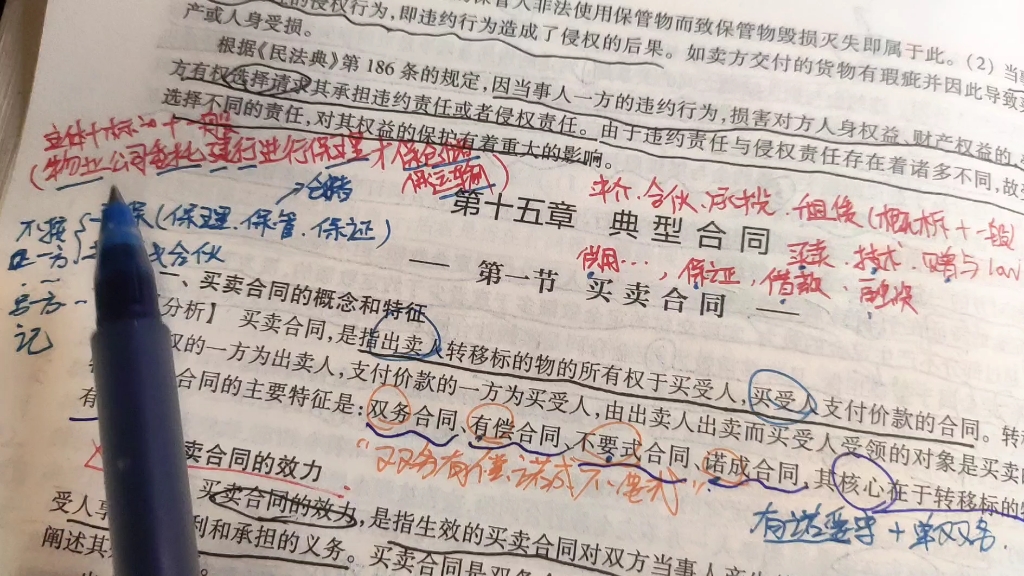 的侵权行为，即违约行为造成了侵权的后果。如卖方交付的货物有瑕疵并因此导致
保管人非法使用保管物而致保管物毁损灭失即属于此。（2）当
产或人身受损。
根据《民法典》第 186 条的规定，因当事人一方的违约行为，损害对方人身权益、财产权益的，
方有权选择请求其承担违约责任或者侵权责任。由于违约责任与侵权责任存在着诸多不同，故
选择不同的责任，对其权益的保护有着重大的影响。
主体+标的+一般
(物业公司委托
进行保理
仓储
第十五章 典型合同
合伙、承揽、租赁
买卖、技术、赠与
借用…，保证，借款、融资
保(保理、保管、保证)
合伙
记
第一节 买卖合同
一、买卖合同的概念和特征
分析】 买卖合同，是指出卖人转移标的物的所有权于买受人，买受人支付价款的合同。转
权的一方为出卖人，支付价款的一方为买受人，由出卖人出卖而买受人受领的对象是买卖
合同的主要特征是：双务合同、有偿合同、不要式合同、诺成合同，其核心在于转移标的
有
“双务有偿诺成不要式”
+单双务
卖合同的效力
买卖合同的效力，是指生效的买卖合同对双方当事人产生
受人享
利和承担的义务。买卖合同是双务合
阐述其